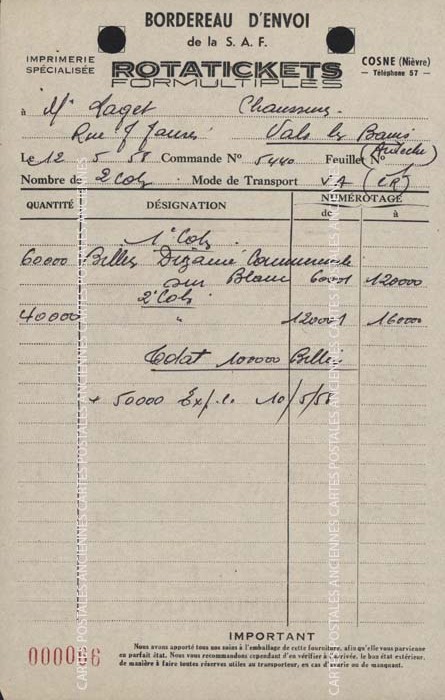 BORDEREAU D'ENVOI
de la S. A. F.
IMPRIMERIE
SPÉCIALISÉE
ROTATICKETS
FORMULTIPLES
COSNE (Nièvre)
— Téléphone 57 —
à Mr Laget Chaussures
Rue J Jaurès Vals les Bains
(Ardèche)
Le 12 5 58 Commande No 5440 Feuillet No
Nombre de 2 Colis Mode de Transport VA (CR)
QUANTITÉ DÉSIGNATION NUMÉROTAGE
de à
1° Colis
60000 Billets Dizaine Commerciale
sur Blanc 60001 120000
2° Colis
40000 " 120001 160000
Total 100000 Billets
+ 50000 Exp. le 10/5/58
IMPORTANT
Nous avons apporté tous nos soins à l'emballage de cette fourniture, afin qu'elle vous parvienne
en parfait état. Nous vous recommandons cependant d'en vérifier à l'arrivée, le bon état extérieur,
de manière à faire toutes réserves utiles au transporteur, en cas d'avarie ou de manquant.
CARTES POSTALES ANCIENNES CARTES POSTALES ANCIENNES CARTES POSTALES ANCIENNES
CARTES POSTALES ANCIENNES CARTES POSTALES ANCIENNES CARTES POSTALES ANCIENNES